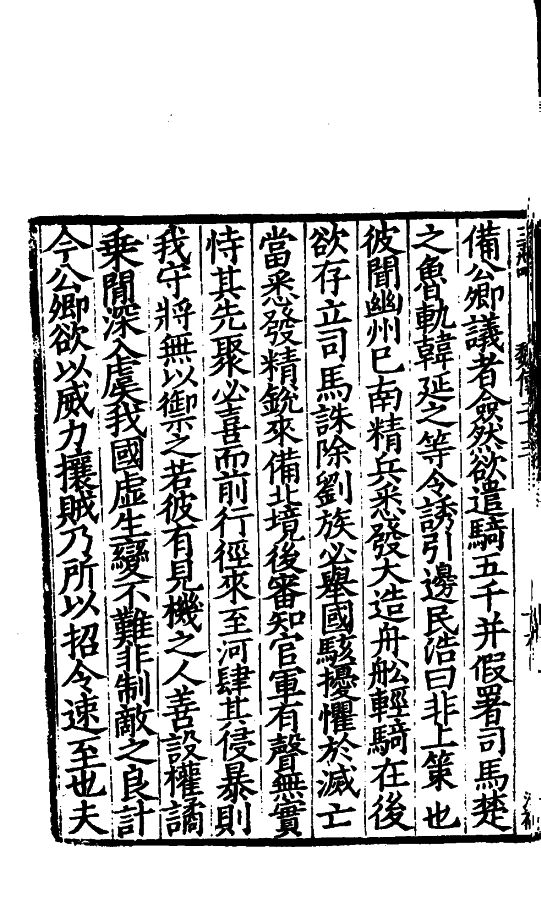 備公卿議者僉然欲遣騎五千并假署司馬楚
之魯軌韓延之等令誘引邊民浩曰非上策也
彼聞幽州已南精兵悉發大造舟舩輕騎在後
欲存立司馬誅除劉族必舉國駭擾懼於滅亡
當悉發精銳來備北境後審知官軍有聲無實
恃其先聚必喜而前行徑來至河肆其侵暴則
我守將無以御之若彼有見機之人善設權譎
乗閒深入虞我國虛生變不難非制敵之良計
今公卿欲以威力攘賊乃所以招令速至也夫